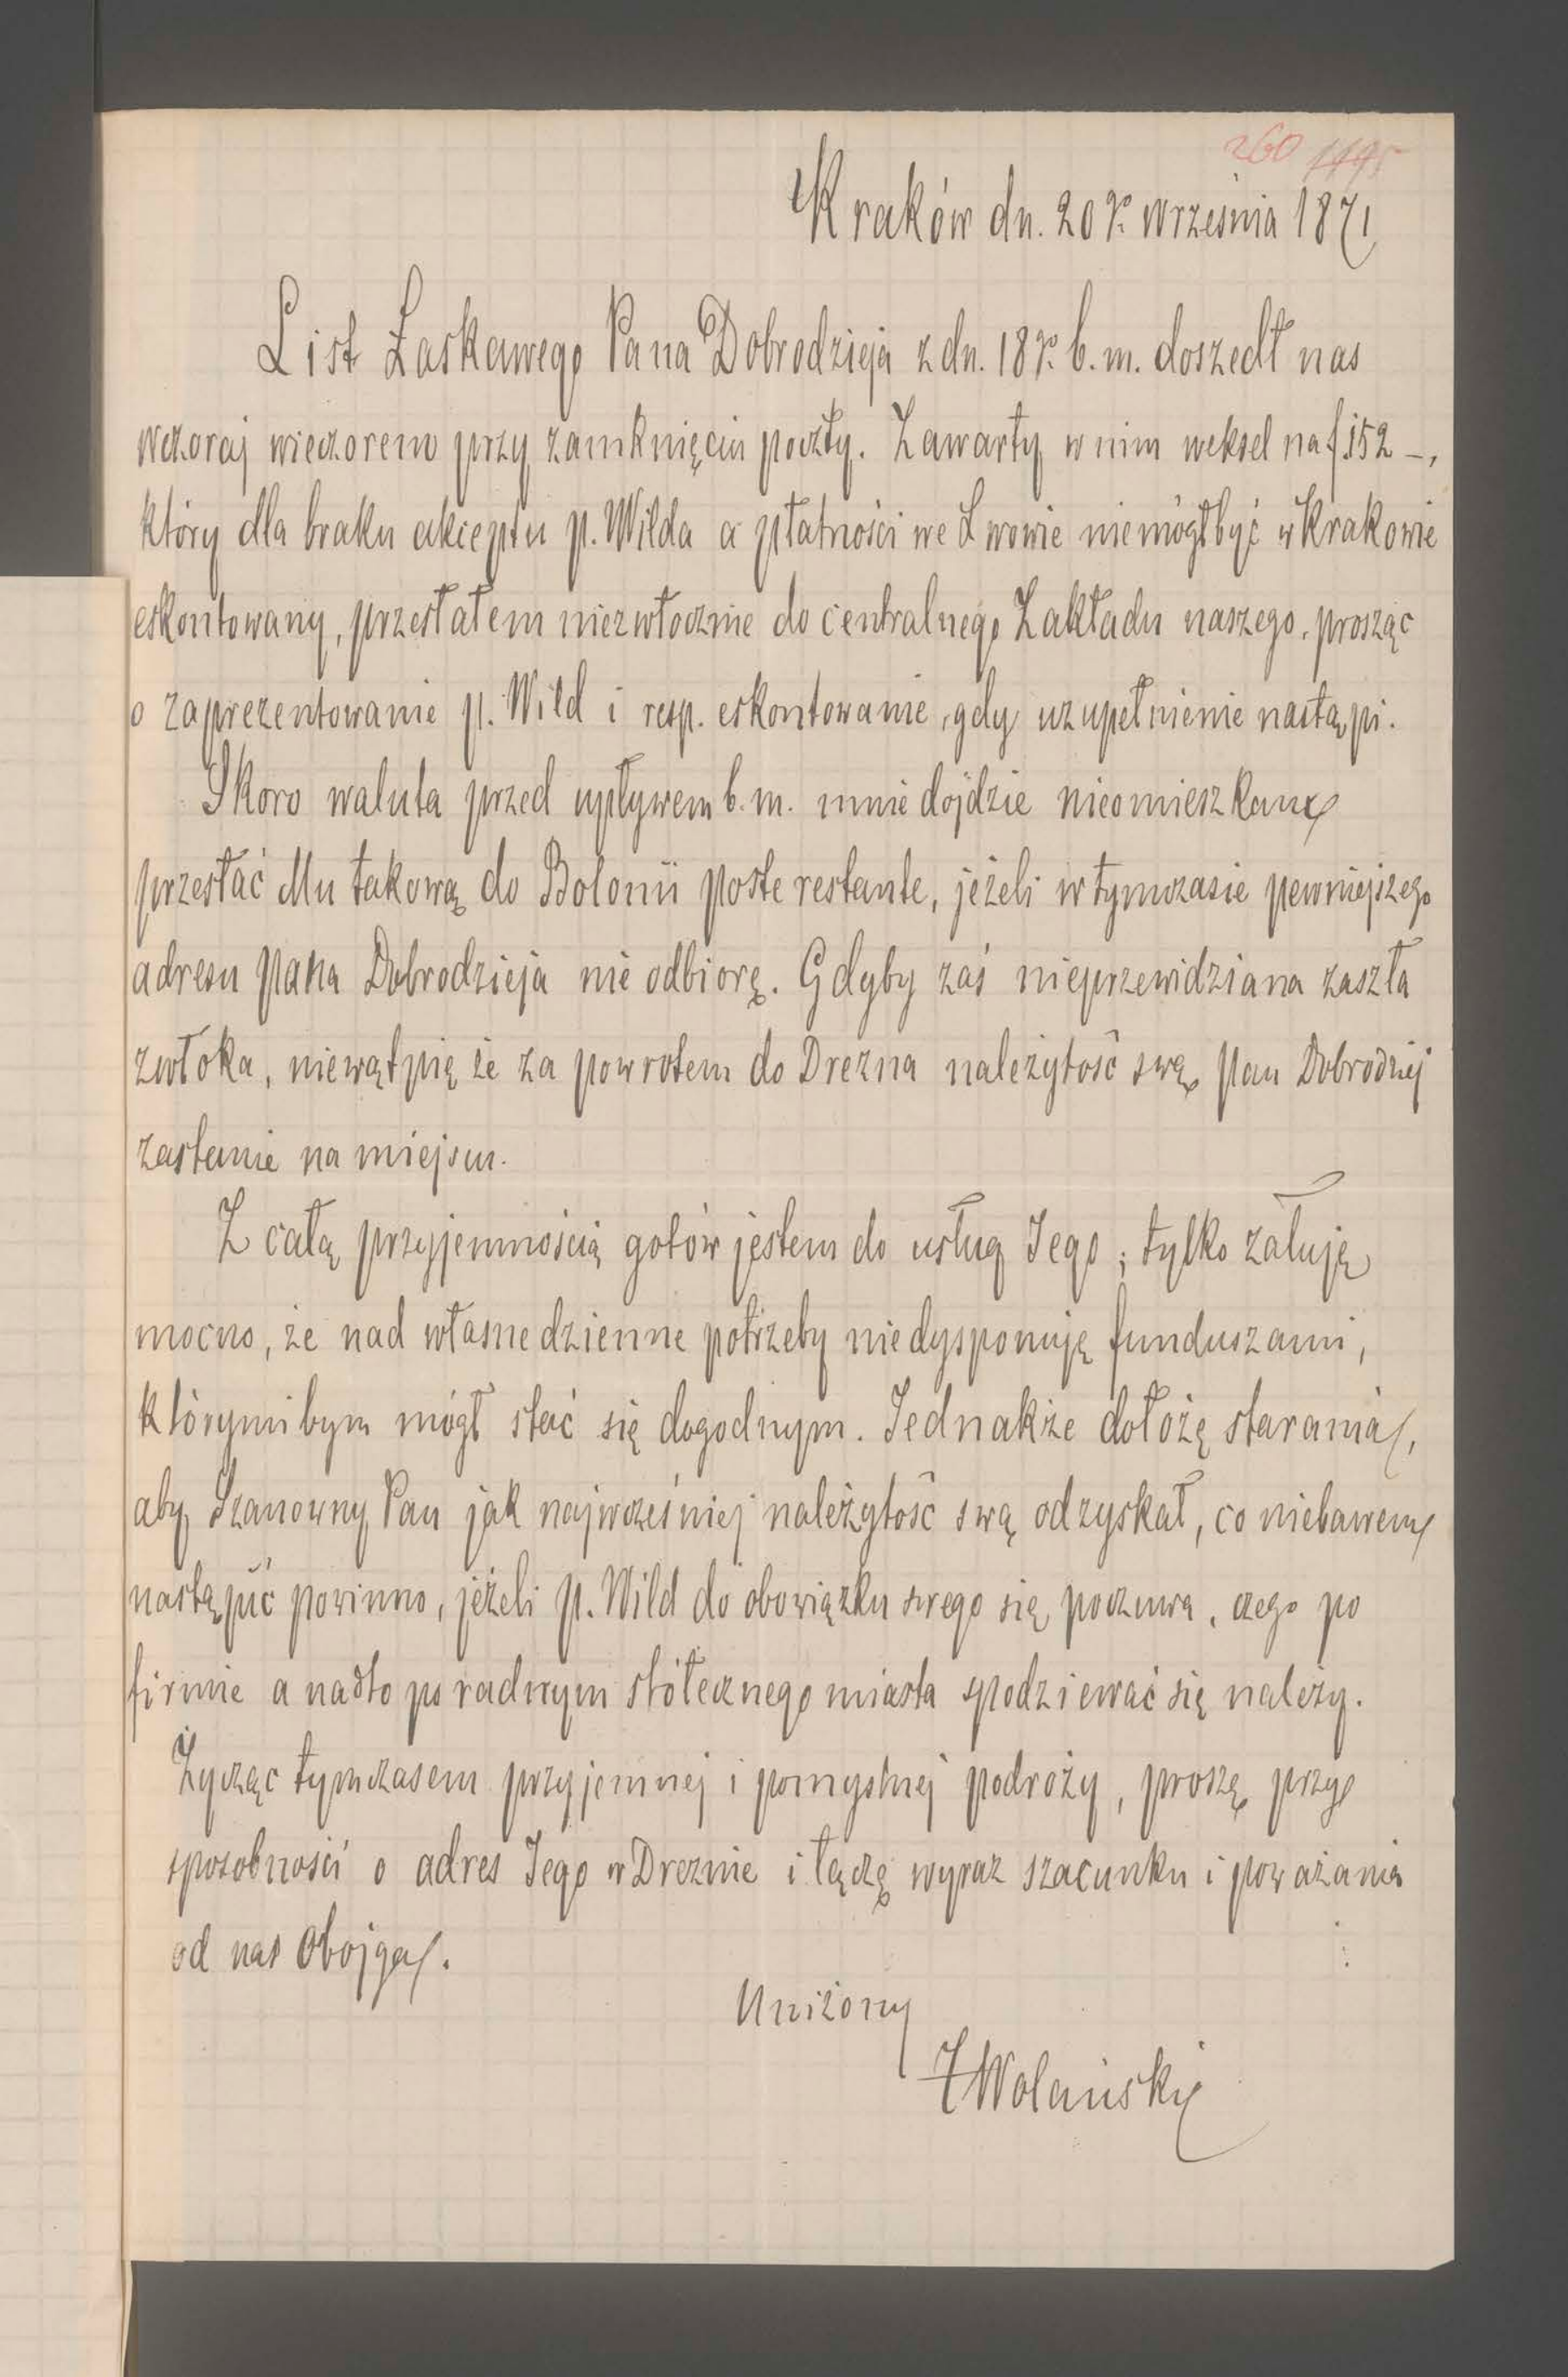 260
Kraków dn. 20 r. września 1871
List Łaskawego Pana Dobrodzieja z dn. 18 r. b. m. doszedł nas
wczoraj wieczorem przy zamknięciu poczty. Zawarty w nim weksel na f. 152 –,
który dla braku akceptu p. Wilda a płatności we Lwowie niemógł być w Krakowie
eskontowany, przesłałem niezwłocznie do centralnego Zakładu naszego, prosząc
o zaprezentowanie p. Wild i resp. eskontowanie, gdy uzupełnienie nastąpi.
Skoro waluta przed upływem b. m. mnie dojdzie nieomieszkam
przesłać Mu takową do Bolonii poste restante, jeżeli w tymczasie pewniejszego
adresu pana Dobrodzieja nie odbiorę. Gdyby zaś nieprzewidziana zaszła
zwłoka, niewątpię że za powrotem do Drezna należytość swą pan Dobrodziej
zastanie na miejscu.
Z całą przyjemnością gotów jestem do usług Jego; tylko żałuję
mocno, że nad własne dzienne potrzeby niedysponuję funduszami,
którymi bym mógł stać się dogodnym. Jednakże dołożę starania,
aby Szanowny Pan jak najwcześniej należytość swą odzyskał, co niebawem
nastąpić powinno, jeżeli p. Wild do obowiązku swego się poczuwa, czego po
firmie a nadto po radnym stółecznego miasta spodziewać się należy.
Życząc tymczasem przyjemnej i pomyślnej podróży, proszę przy
sposobności o adres Jego w Dreznie i łączę wyraz szacunku i poważania
od nas obojga.
Uniżony
Wolański